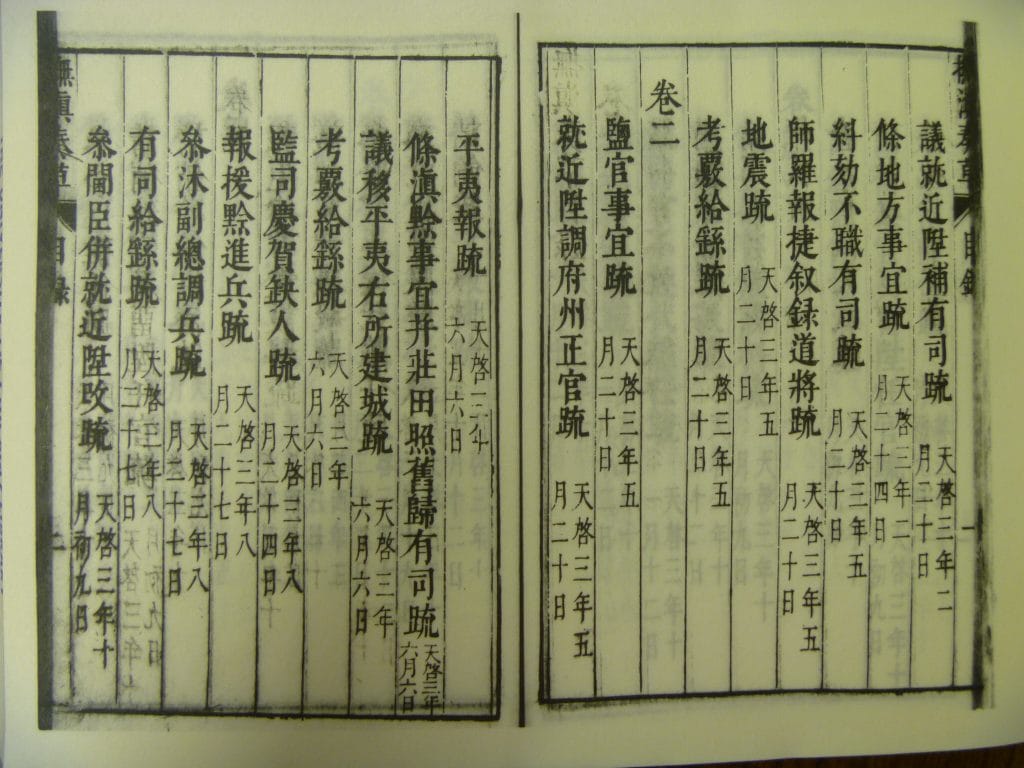 議就近陞補有司䟽 天啓三年二月二十日
條地方事宜䟽 天啓三年二月二十四日
糾劾不職有司䟽 天啓三年五月二十日
師羅報捷叙録道將䟽 天啓三年五月二十日
地震䟽 天啓三年五月二十日
考覈給繇䟽 天啓三年五月二十日
卷二
鹽官事宜䟽 天啓三年五月二十日
就近陞調府州正官䟽 天啓三年五月二十日
目録
一
平夷報䟽 天啓三年六月六日
條滇黔事宜并莊田照舊歸有司䟽 天啓三年六月六日
議移平夷右所建城䟽 天啓三年六月六日
考覈給繇䟽 天啓三年六月六日
監司慶賀缺人䟽 天啓三年八月二十四日
報援黔進兵䟽 天啓三年八月二十七日
叅沐副總調兵䟽 天啓三年八月二十七日
有司給繇䟽 天啓三年八月二十七日
叅閫臣併就近陞改䟽 天啓三年十月初九日
撫滇奏草
目録